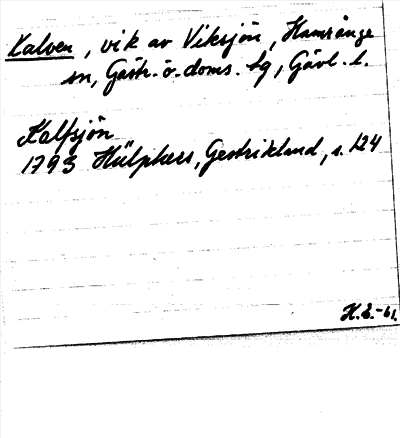 Kalven, vik av Viksjön, Hamrånge
sn, Gästr. ö. doms. tg, Gävl. l.
Kalfsjön
1793 Hülphers, Gestrikland, s. 124
H.E.-61.